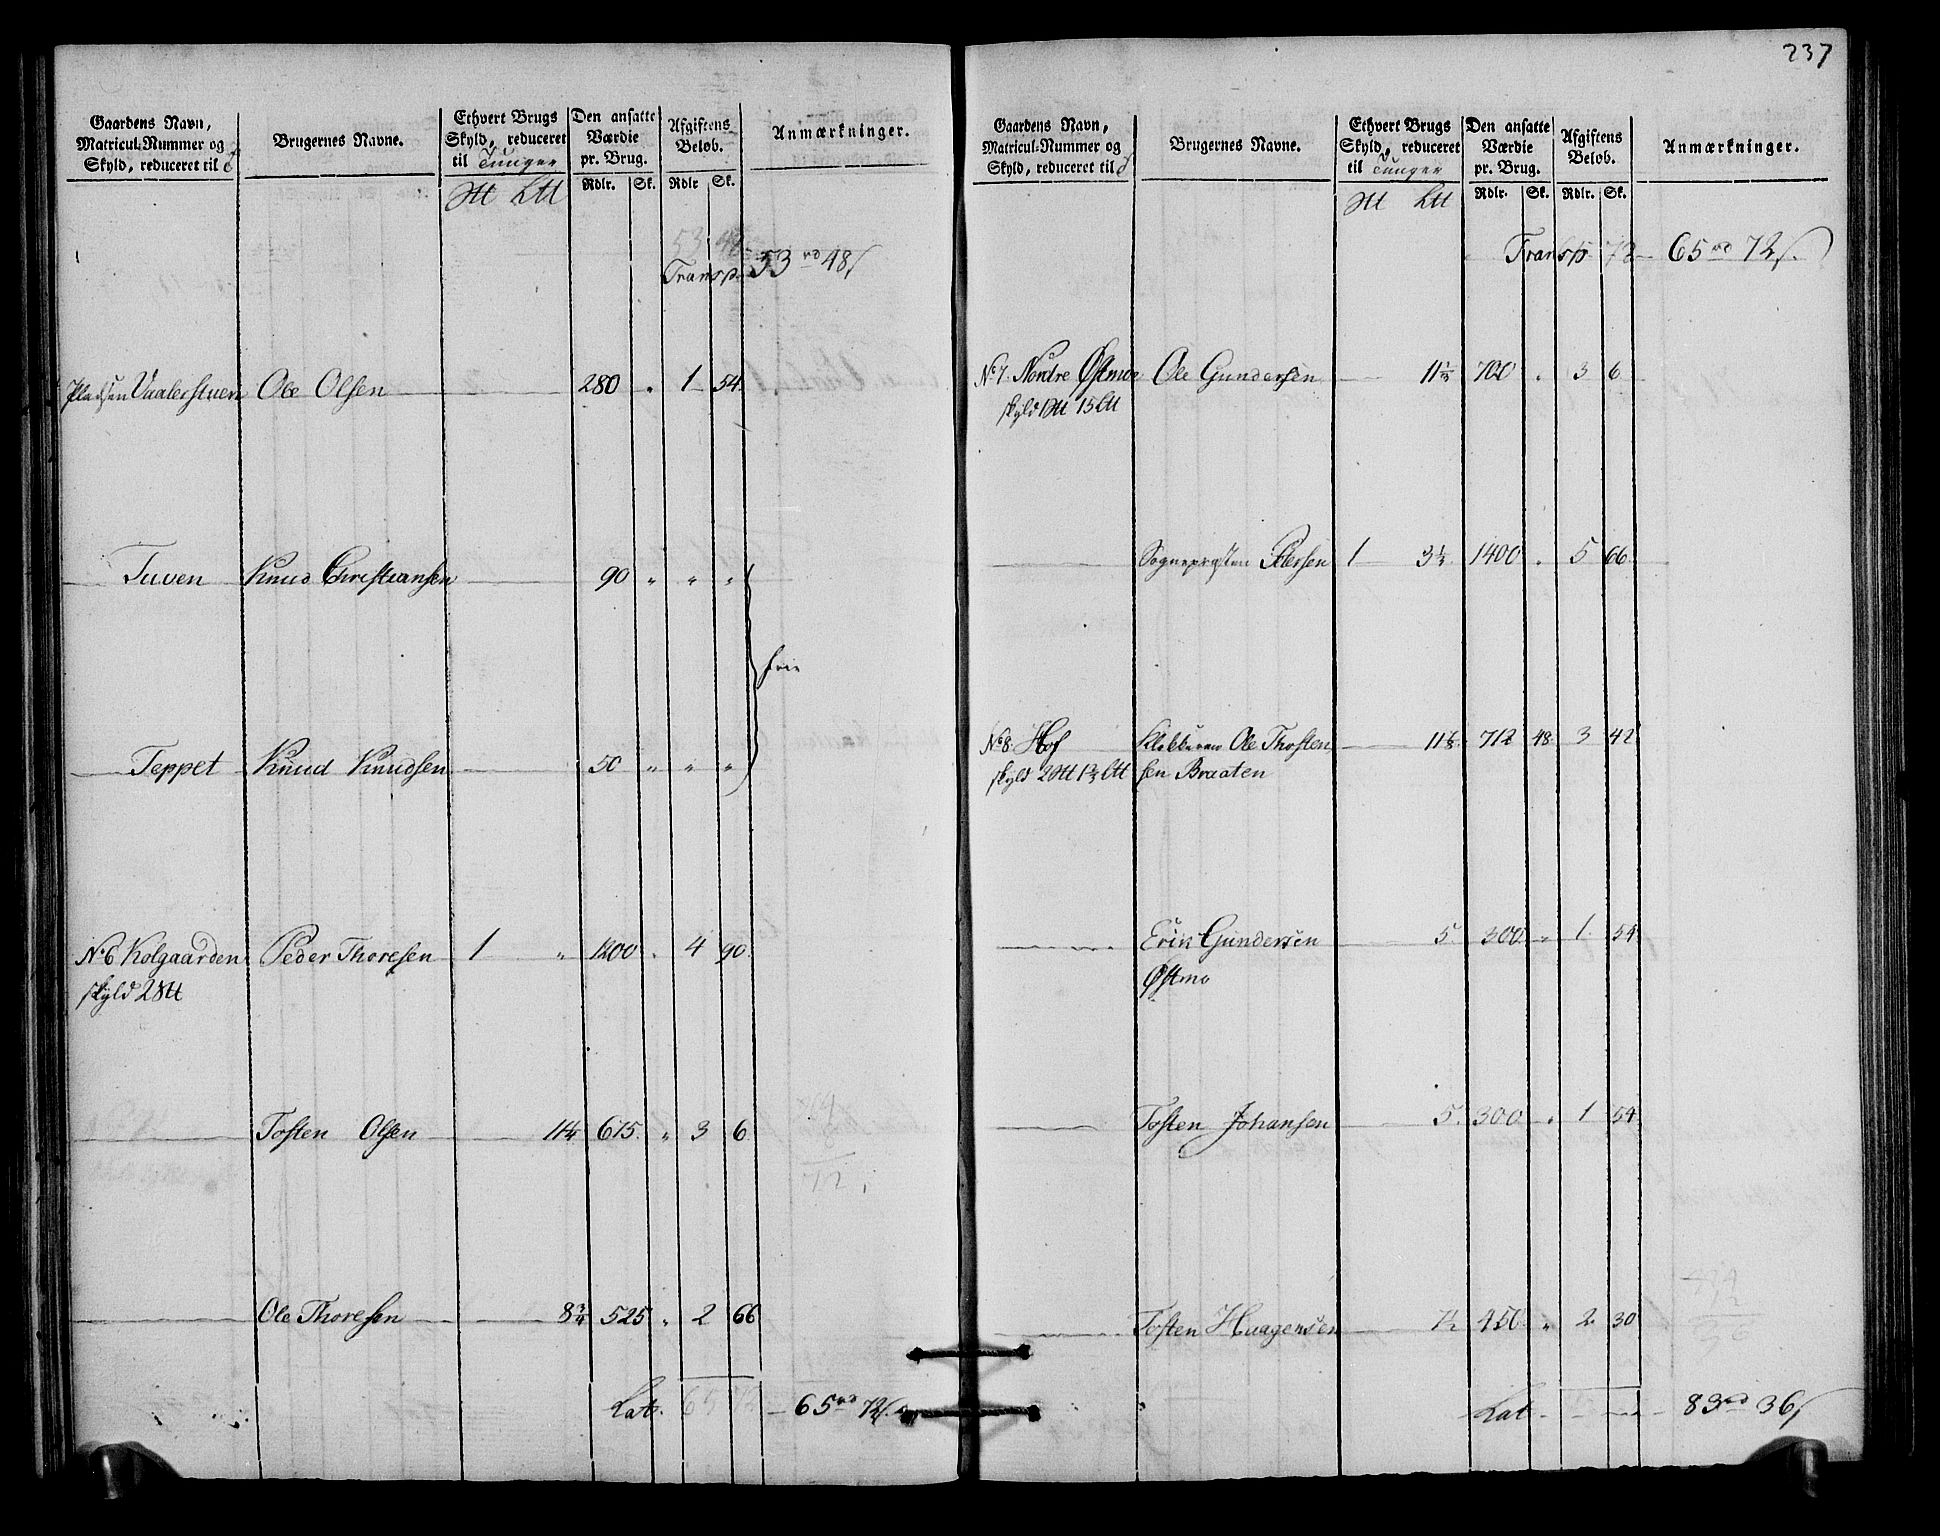 Gaardens Navn,
Matricul-Nummer og
Skyld, reduceret til
Brugernes Navne.
Ethvert Brugs
Skyld, reduceret
til Tunger
Den ansatte
Værdie
pr. Brug.
Afgiftens
Beløb.
Anmærkninger.
Rdlr. Sk. Rdlr Sk.
Transp. 53 rd 48 s
Pladsen Vaalerstuen Ole Olsen 280 „ 1 54
Tuven Knud Christiansen 90 „ „ „
frie
Teppet Knud Knudsen 50 „ „ „
No 6 Kolgaarden Peder Thoresen 1 „ 1200 „ 4 90
skyld 2
Tosten Olsen 11 1/4 615 „ 3 6
Ole Thoresen 8 3/4 525 „ 2 66
Lat. 65 rd 72 s
237
Gaardens Navn,
Matricul-Nummer og
Skyld, reduceret til
Brugernes Navne.
Ethvert Brugs
Skyld, reduceret
til Tunger
Den ansatte
Værdie
pr. Brug.
Afgiftens
Beløb.
Anmærkninger.
Rdlr. Sk. Rdlr. Sk.
Transp 65 rd 72 s.
No 7 Nordre Østmoe Ole Gundersen 700 „ 3 6
skyld 1 15
Sognepræsten Petersen 1 1400 „ 5 66
No 8 Hof Klokkeren Ole Thosten 712 48 3 42
skyld 2 sen Braaten
Erik Gundersen 5 300 „ 1 54
Østmo
Tosten Johansen 5 300 „ 1 54
Tosten Haagensen 7 1/2 450 „ 2 30
Lat. 83 rd 36 s